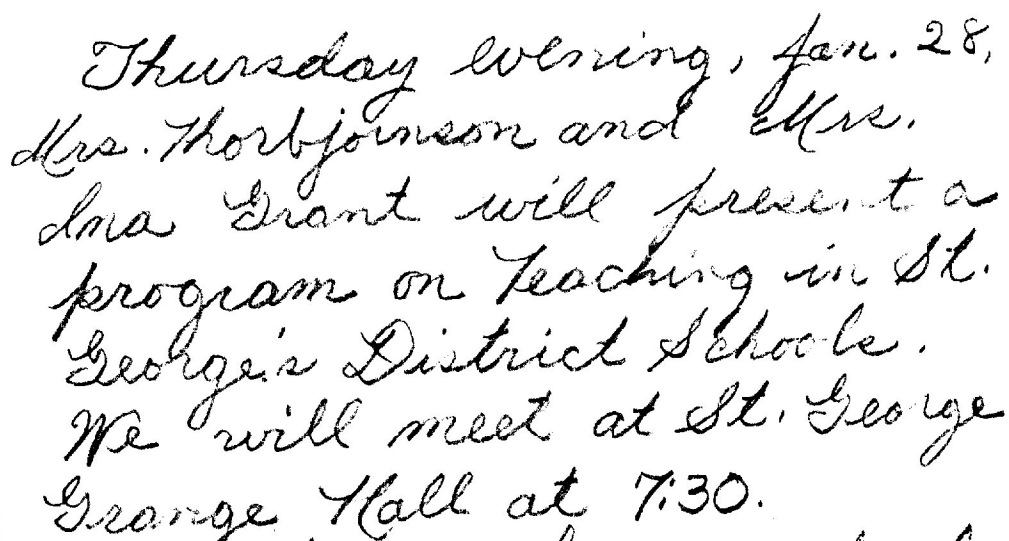 Thursday evening, Jan. 28,
Mrs. Thorbjoinson and Mrs.
Ina Grant will present a
program on Teaching in St.
George's District Schools.
We will meet at St. George
Grange Hall at 7:30.